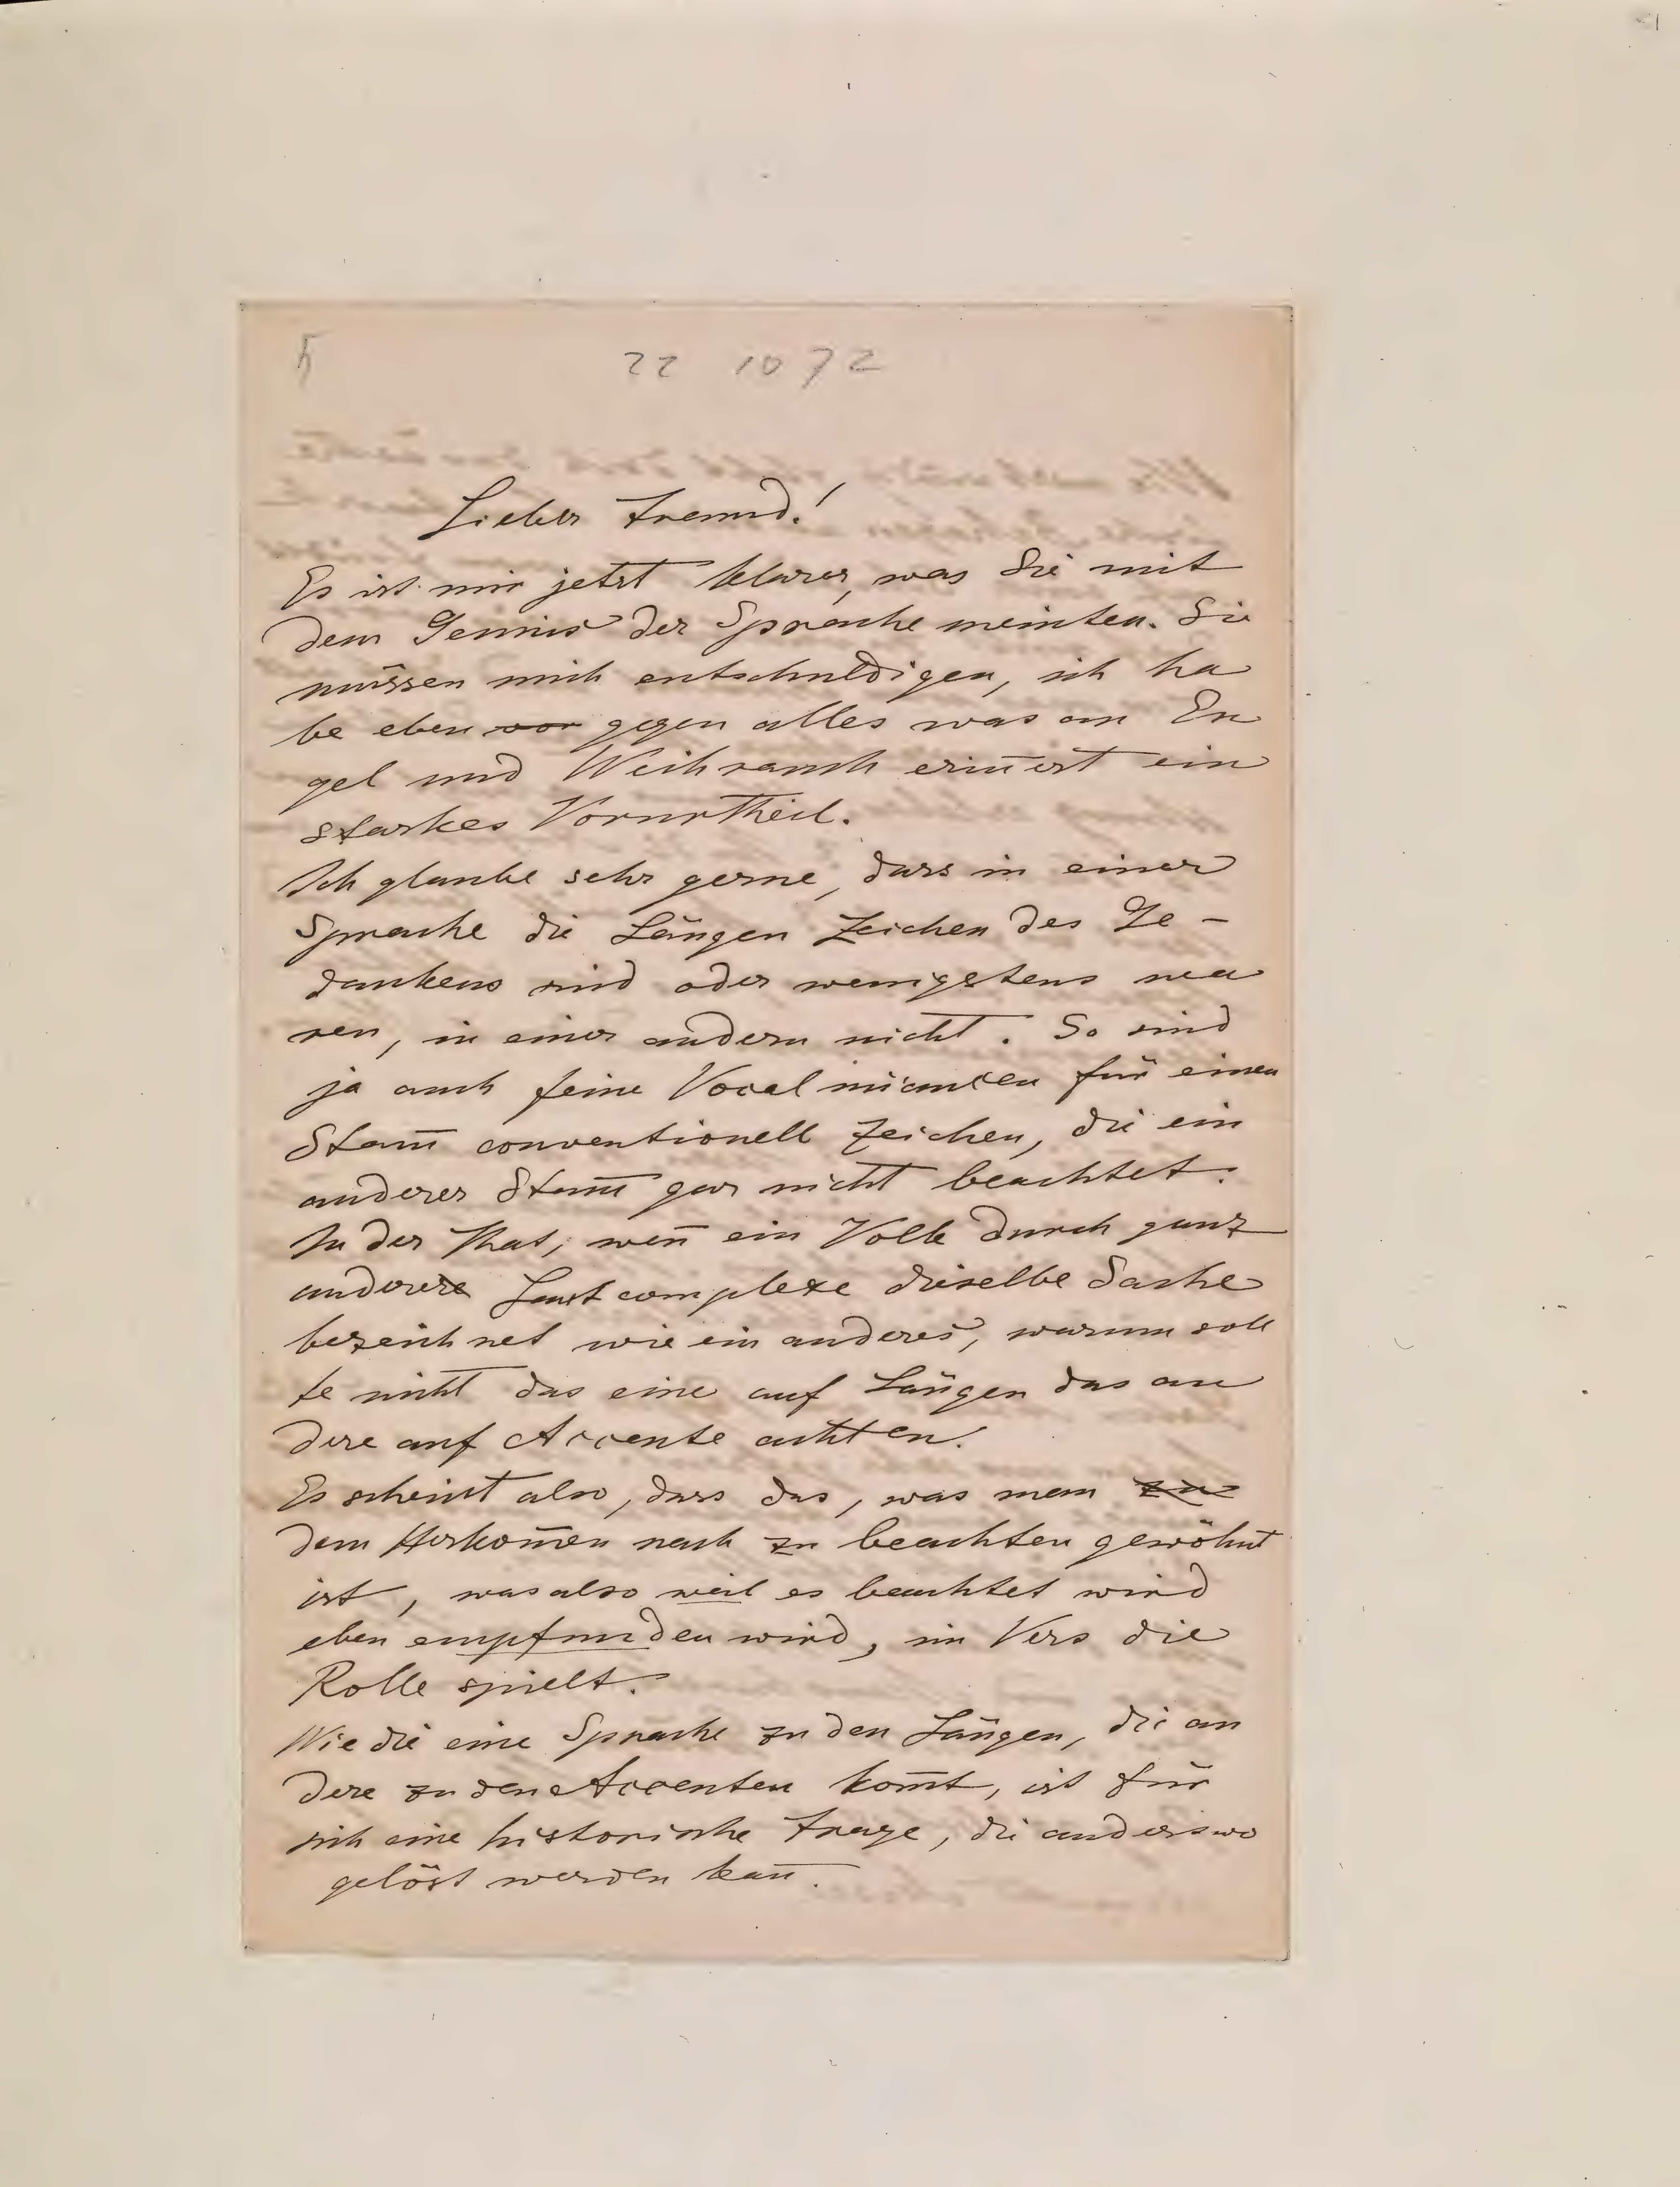 5 22 10 72
Lieber Freund!
Es ist mir jetzt klarer, was Sie mit
dem Genius der Sprache meinten. Sie
müssen mich entschuldigen, ich ha
be eben vor gegen alles was an En
gel und Weihrauch erin̄ert ein
starkes Vorurtheil.
Ich glaube sehr gerne, dass in einer
Sprache die Längen Zeichen des Ge-
dankens sind oder wenigstens wa
ren, in einer andern nicht. So sind
ja auch feine Vocalnüancen für einen
Stam̄ conventionell Zeichen, die ein
anderer Stam̄ gar nicht beachtet.
In der That, wen̄ ein Volk durch ganz
andere Lautcomplexe dieselbe Sache
bezeichnet wie ein anderes, warum soll
te nicht das eine auf Längen das an
dere auf Accente achten.
Es scheint also, dass das, was man zu
dem Herkom̄en nach zu beachten gewöhnt
ist, was also weil es beachtet wird
eben empfunden wird, im Vers die
Rolle spielt.
Wie die eine Sprache zu den Längen, die an
dere zu den Accenten kom̄t, ist für
sich eine historische Frage, die anderswo
gelöst werden kan̄.